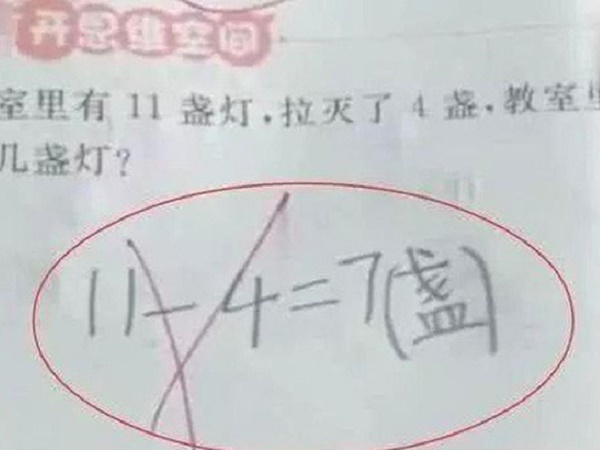 开思维空间
室里有 11 盏灯,拉灭了 4 盏,教室里
几盏灯?
11-4=7(盏)